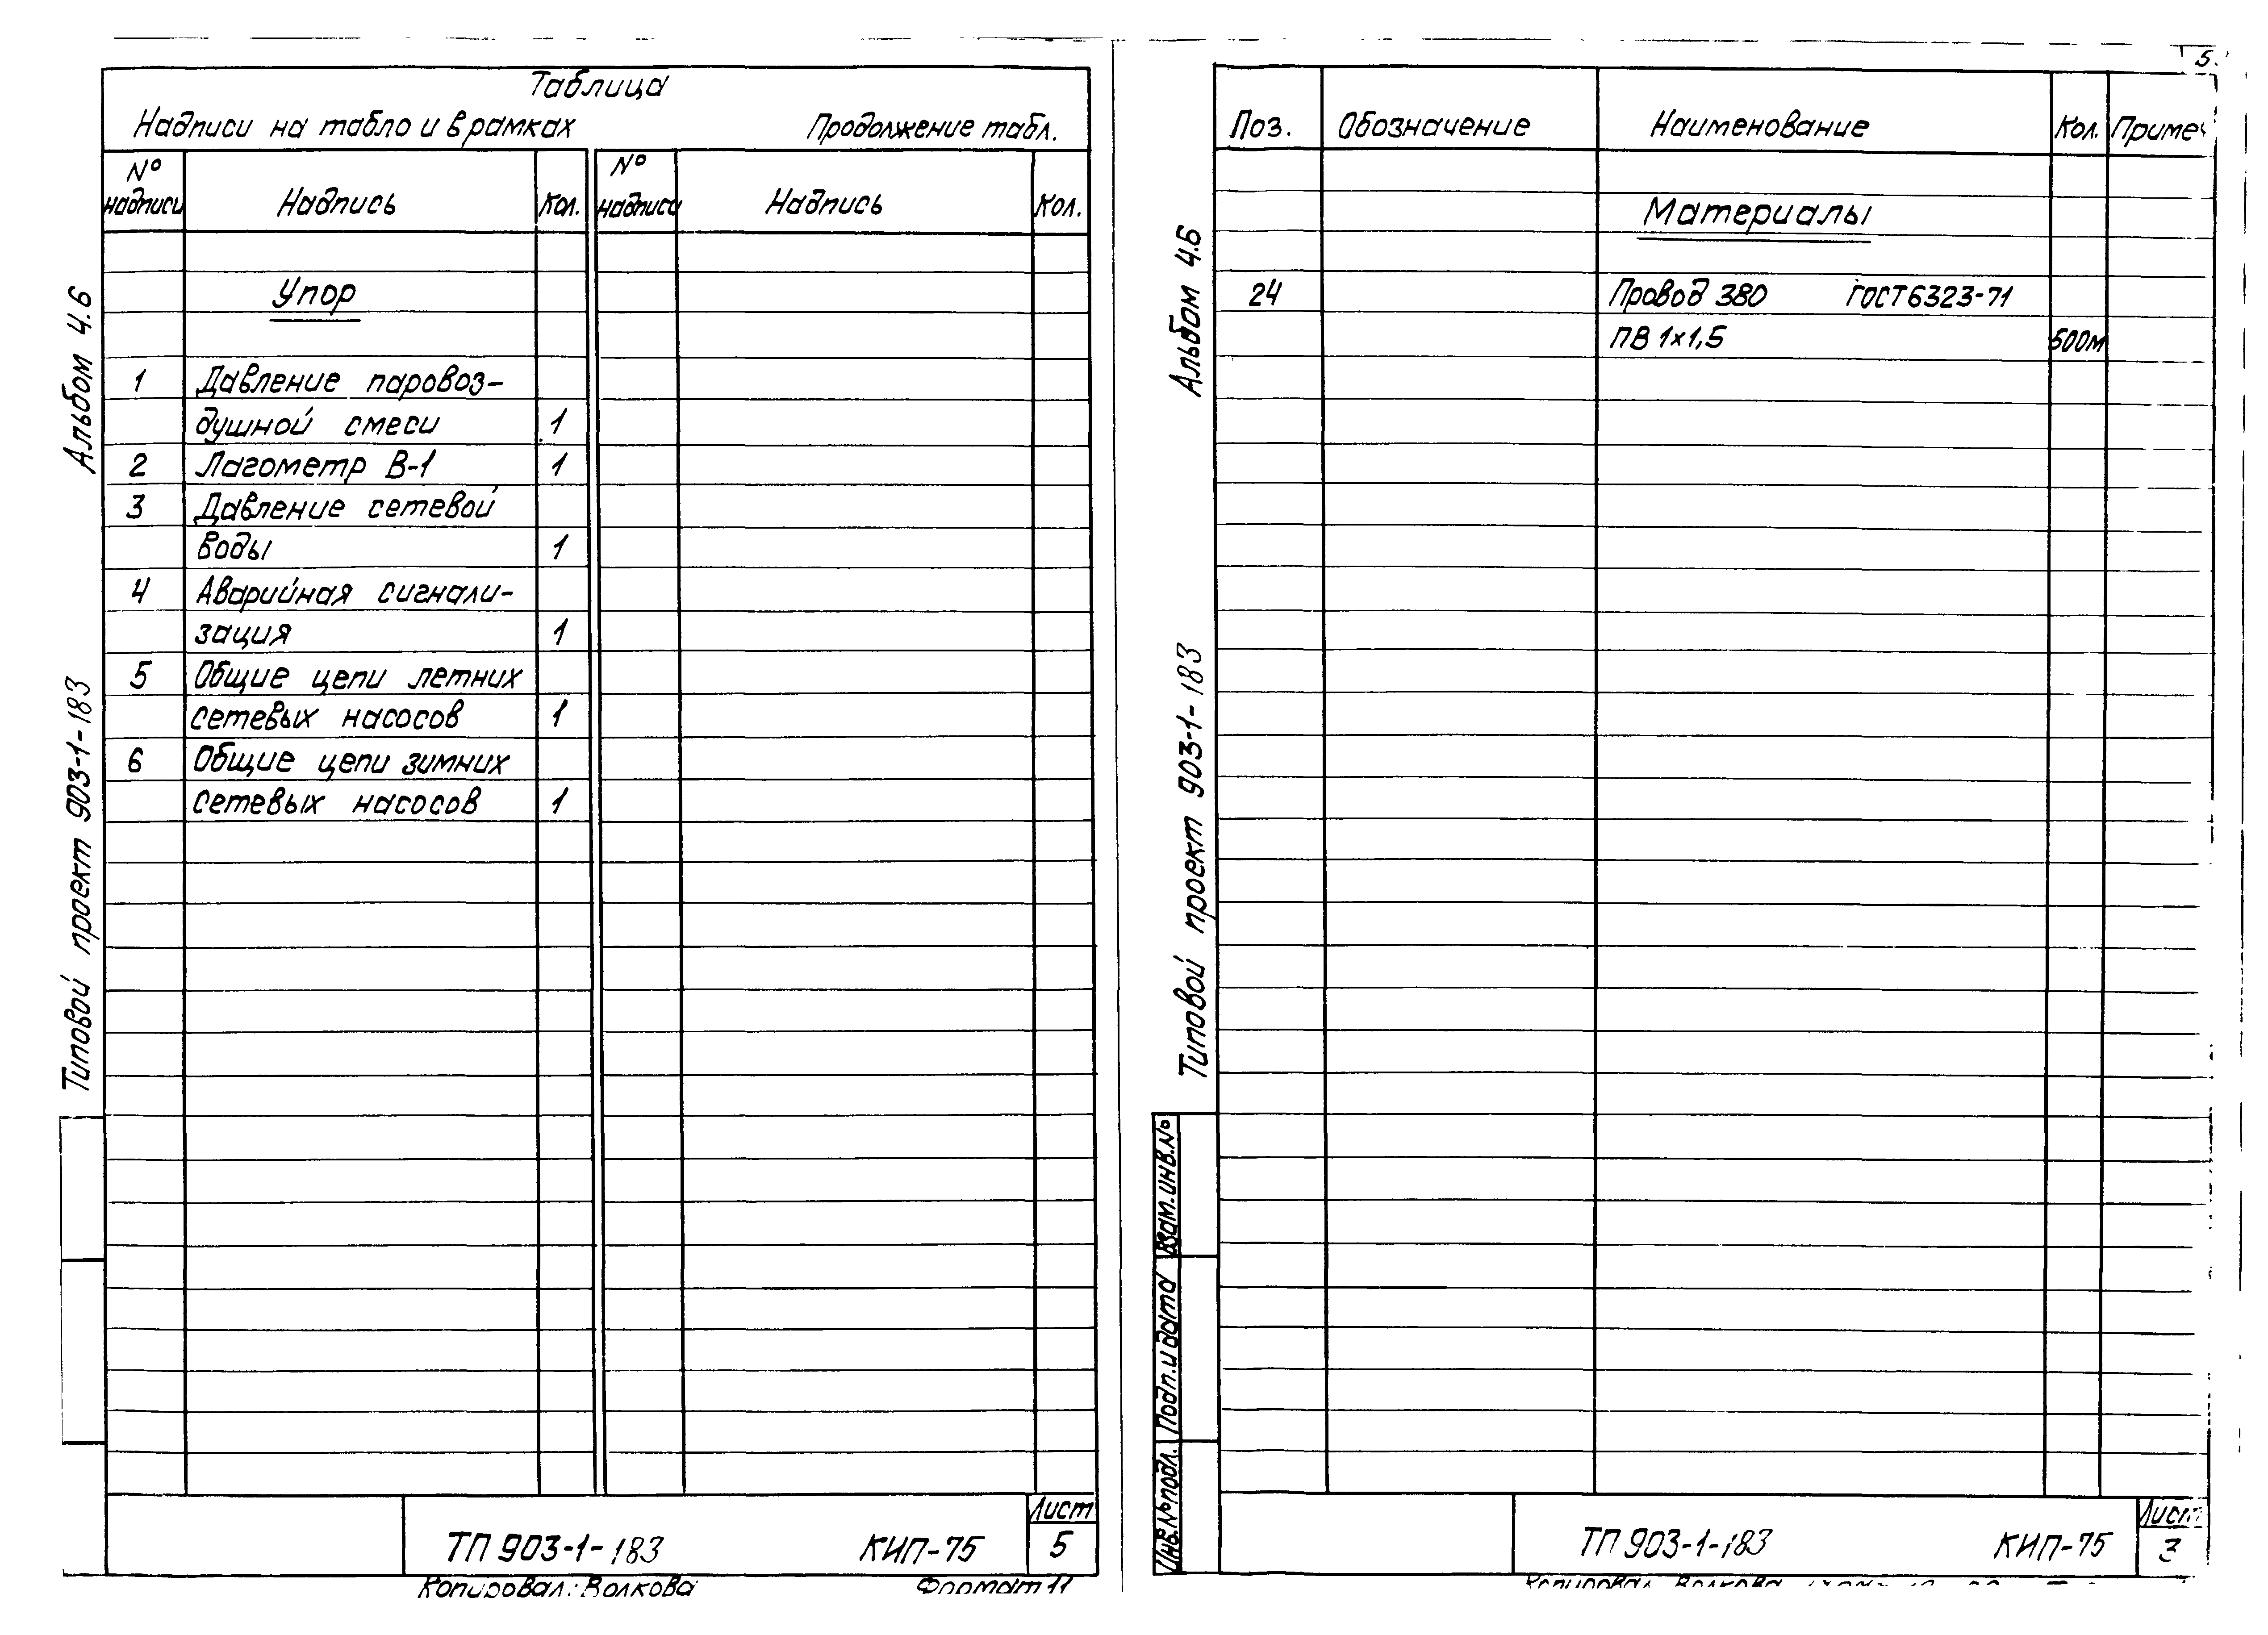 Таблица
Надписи на табло и в рамках Продолжение табл.
№ надписи Надпись Кол. № надписи Надпись Кол.
Упор
1 Давление паровоз-
душной смеси 1
2 Логометр В-1 1
3 Давление сетевой
воды 1
4 Аварийная сигнали-
зация 1
5 Общие цепи летних
сетевых насосов 1
6 Общие цепи зимних
сетевых насосов 1
Альбом 4.6
Типовой проект 903-1-183
ТП 903-1-183 КИП-75 Лист
5
Копировал: Волкова Формат 11
5
Поз. Обозначение Наименование Кол. Примеч
Материалы
24 Провод 380 ГОСТ 6323-71
ПВ 1х1,5 500м
Альбом 4.6
Типовой проект 903-1-183
Взам. инв. №
Подп. и дата
Инв. № подл.
ТП 903-1-183 КИП-75 Лист
3
Копировал Волкова